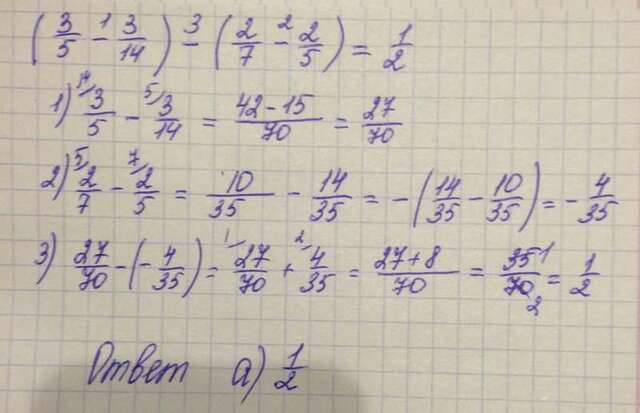 (3/5 -¹ 3/14) -³ (2/7 -² 2/5) = 1/2
1) ¹⁴/3/5 - ⁵/3/14 = 42-15/70 = 27/70
2) ⁵/2/7 - ⁷/2/5 = 10/35 - 14/35 = -(14/35 - 10/35) = - 4/35
3) 27/70 - (- 4/35) = ¹/27/70 + ²/4/35 = 27+8/70 = 35 1/70 2 = 1/2
Ответ а) 1/2